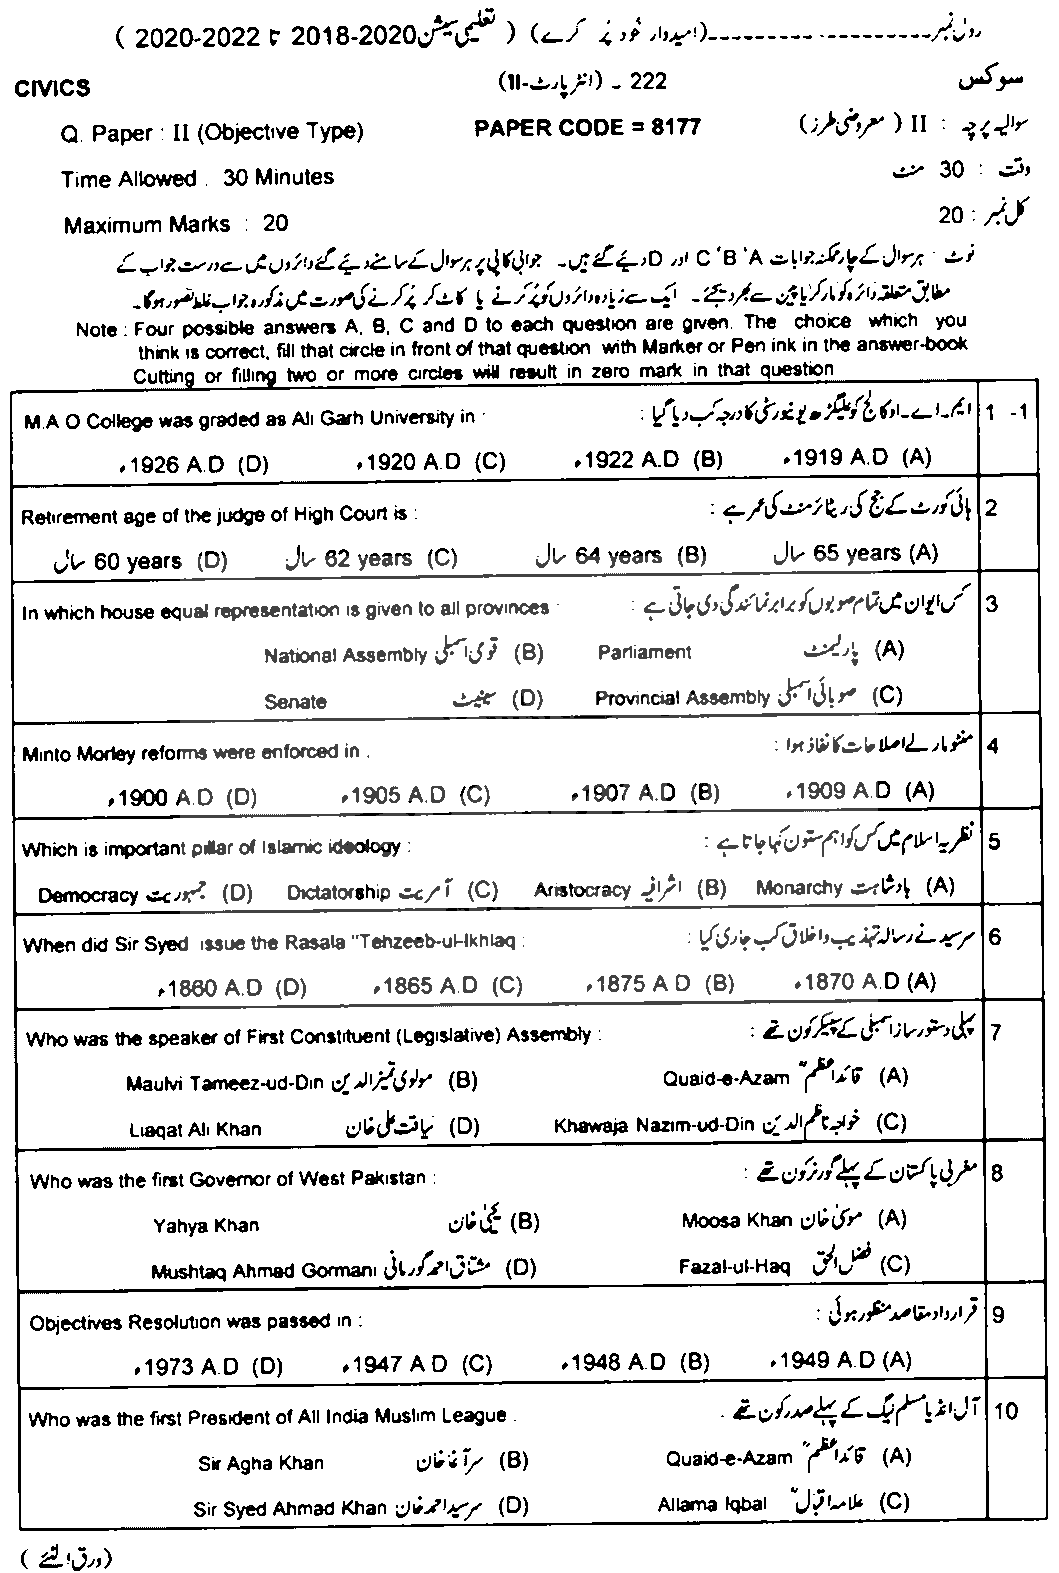 رول نمبر ---------------------------(امیدوار خود پُر کرے) ( تعلیمی سیشن 2018-2020 تا 2020-2022 )
CIVICS 222 - (انٹر پارٹ-II) سوکس
Q. Paper : II (Objective Type) PAPER CODE = 8177 سوالیہ پرچہ : II ( معروضی طرز)
Time Allowed . 30 Minutes وقت : 30 منٹ
Maximum Marks : 20 کل نمبر : 20
نوٹ - ہر سوال کے چار ممکنہ جوابات A ' B ' C اور D دیئے گئے ہیں۔ جوابی کاپی پر ہر سوال کے سامنے دیئے گئے دائروں میں سے درست جواب کے
مطابق متعلقہ دائرہ کو مارکر یا پین سے بھر دیجئے۔ ایک سے زیادہ دائروں کو پُر کرنے یا کاٹ کر پُر کرنے کی صورت میں مذکورہ جواب غلط تصور ہوگا۔
Note : Four possible answers A, B, C and D to each question are given. The choice which you
think is correct, fill that circle in front of that question with Marker or Pen ink in the answer-book
Cutting or filling two or more circles will result in zero mark in that question
M.A O College was graded as Ali Garh University in : ایم۔اے۔او کالج کو علیگڑھ یونیورسٹی کا درجہ کب دیا گیا : 1 -1
ء1926 A.D (D) ء1920 A.D (C) ء1922 A.D (B) ء1919 A.D (A)
Retirement age of the judge of High Court is : ہائی کورٹ کے جج کی ریٹائرمنٹ کی عمر ہے : 2
سال 60 years (D) سال 62 years (C) سال 64 years (B) سال 65 years (A)
In which house equal representation is given to all provinces : کس ایوان میں تمام صوبوں کو برابر نمائندگی دی جاتی ہے : 3
National Assembly قومی اسمبلی (B) Parliament پارلیمنٹ (A)
Senate سینیٹ (D) Provincial Assembly صوبائی اسمبلی (C)
Minto Morley reforms were enforced in . منٹو مارلے اصلاحات کا نفاذ ہوا : 4
ء1900 A.D (D) ء1905 A.D (C) ء1907 A.D (B) ء1909 A.D (A)
Which is important pillar of Islamic ideology : نظریہ اسلام میں کس کو اہم ستون کہا جاتا ہے : 5
Democracy جمہوریت (D) Dictatorship آمریت (C) Aristocracy اشرافیہ (B) Monarchy بادشاہت (A)
When did Sir Syed issue the Rasala "Tehzeeb-ul-Ikhlaq : سرسید نے رسالہ تہذیب واخلاق کب جاری کیا : 6
ء1860 A.D (D) ء1865 A.D (C) ء1875 A D (B) ء1870 A.D (A)
Who was the speaker of First Constituent (Legislative) Assembly : پہلی دستور ساز اسمبلی کے سپیکر کون تھے : 7
Maulvi Tameez-ud-Din مولوی تمیز الدین (B) Quaid-e-Azam قائداعظمؒ (A)
Liaqat Ali Khan لیاقت علی خان (D) Khawaja Nazim-ud-Din خواجہ ناظم الدین (C)
Who was the first Governor of West Pakistan : مغربی پاکستان کے پہلے گورنر کون تھے : 8
Yahya Khan یحییٰ خان (B) Moosa Khan موسیٰ خان (A)
Mushtaq Ahmad Gormani مشتاق احمد گورمانی (D) Fazal-ul-Haq فضل الحق (C)
Objectives Resolution was passed in : قرارداد مقاصد منظور ہوئی : 9
ء1973 A.D (D) ء1947 A D (C) ء1948 A.D (B) ء1949 A.D (A)
Who was the first President of All India Muslim League . آل انڈیا مسلم لیگ کے پہلے صدر کون تھے . 10
Sir Agha Khan سر آغا خان (B) Quaid-e-Azam قائداعظمؒ (A)
Sir Syed Ahmad Khan سرسید احمد خان (D) Allama Iqbal علامہ اقبالؒ (C)
(ورق الٹئے )